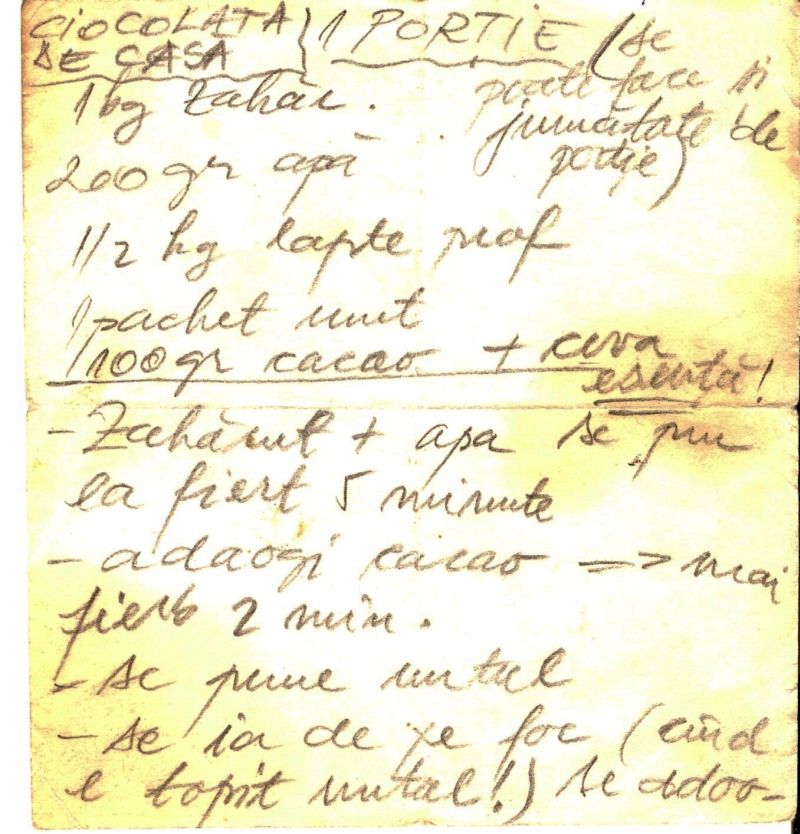 CIOCOLATA DE CASA } 1 PORTIE (se
poate face si
jumatate de
portie)
1 kg Zahăr.
200 gr apă
1/2 kg lapte praf
1 pachet unt
100 gr cacao + ceva
esență!
- Zahărul + apa se pun
la fiert 5 minute
- adaogi cacao => mai
fierb 2 min.
- se pune untul
- se ia de pe foc (când
e topit untul!) se adao-